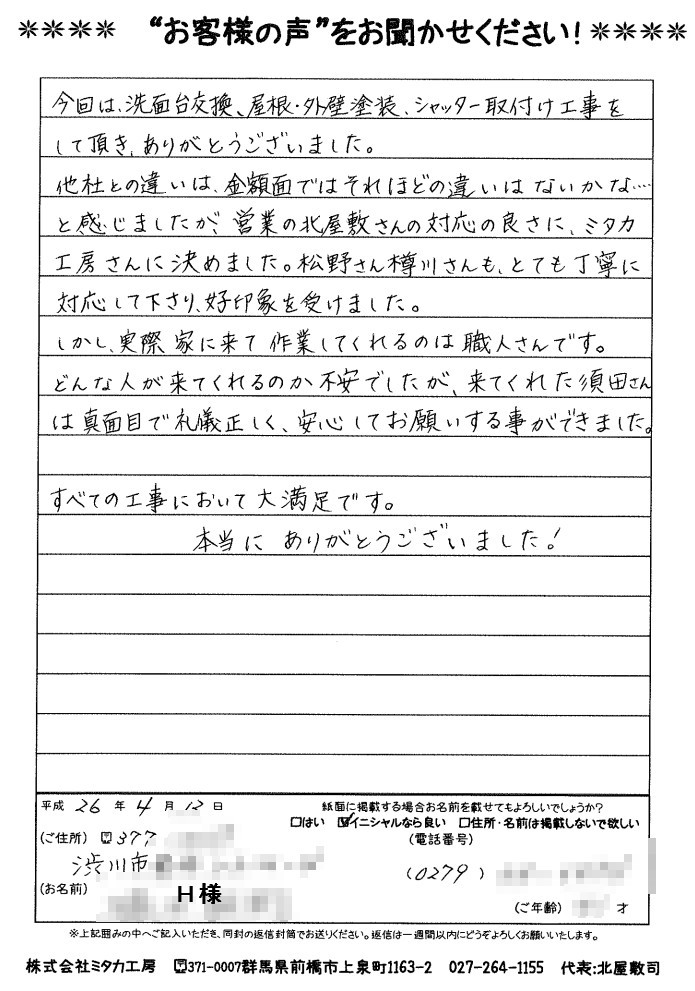 **** “お客様の声”をお聞かせください! ****
今回は、洗面台交換、屋根・外壁塗装、シャッター取付け工事を
して頂き、ありがとうございました。
他社との違いは、金額面ではそれほどの違いはないかな…
と感じましたが、営業の北屋敷さんの対応の良さに、ミタカ
工房さんに決めました。松野さん樽川さんも、とても丁寧に
対応して下さり、好印象を受けました。
しかし、実際家に来て作業してくれるのは職人さんです。
どんな人が来てくれるのか不安でしたが、来てくれた須田さん
は真面目で礼儀正しく、安心してお願いする事ができました。
すべての工事において大満足です。
本当にありがとうございました!
平成 26 年 4 月 12 日
紙面に掲載する場合お名前を載せてもよろしいでしょうか?
□はい ☑イニシャルなら良い □住所・名前は掲載しないで欲しい
(ご住所) 〒377
(電話番号)
渋川市
(0279)
(お名前) H様
(ご年齢) 才
※上記囲みの中へご記入いただき、同封の返信封筒でお送りください。返信は一週間以内にどうぞよろしくお願いいたします。
株式会社ミタカ工房 〒371-0007群馬県前橋市上泉町1163-2 027-264-1155 代表:北屋敷司